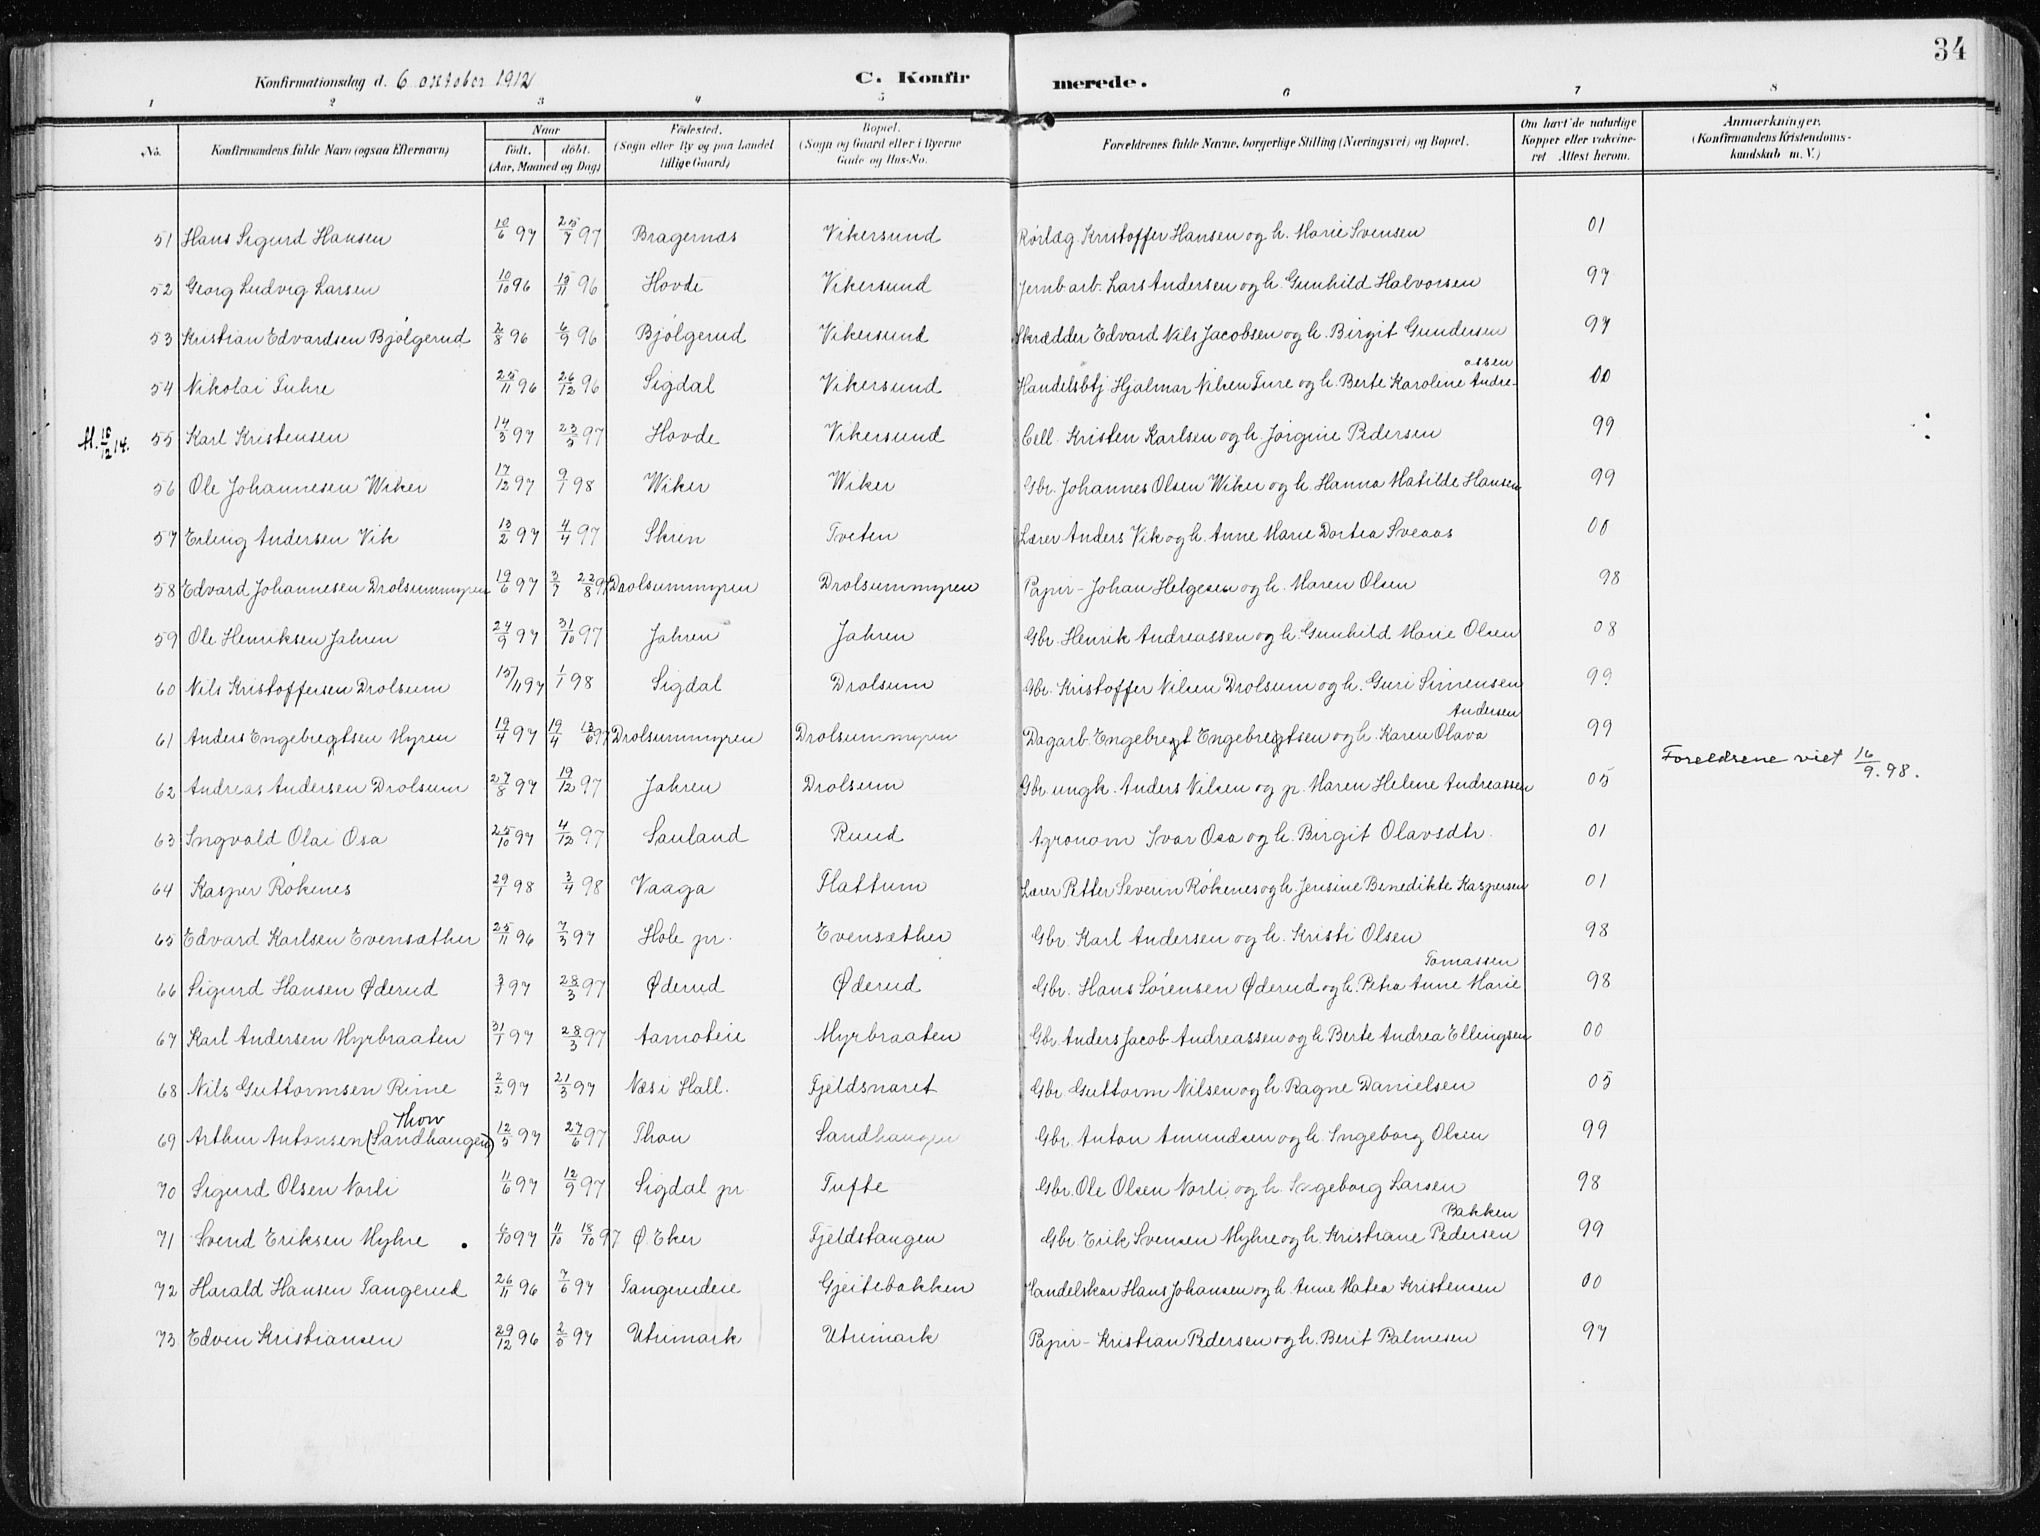 34
Konfirmationsdag d. 6 oktober 1912 C. Konfirmerede.
1 2 3 4 5 6 7 8
No. Konfirmandens fulde Navn (ogsaa Efternavn) Naar født, døbt. (Aar, Maaned og Dag) Fødested. (Sogn eller By og paa Landet tillige Gaard) Bopæl. (Sogn og Gaard eller i Byerne Gade og Hus-No. Forældrenes fulde Navne, borgerlige Stilling (Næringsvei) og Bopæl. Om havt de naturlige Kopper eller vakcineret Attest herom. Anmærkninger. (Konfirmandens Kristendomskundskab m. V.)
51 Hans Sigurd Hansen 10/6 97 25/7 97 Bragernæs Vikersund Rørlæg Kristoffer Hansen og h. Marie Svensen 01
52 Georg Ludvig Larsen 10/10 96 15/11 96 Hovde Vikersund Jernb arb. Lars Andersen og h. Gunhild Halvorsen 97
53 Kristian Edvardsen Bjølgerud 2/8 96 6/9 96 Bjølgerud Vikersund Skrædder Edvard Nils Jacobsen og h. Birgit Gundersen 97
54 Nikolai Fuhre 25/11 96 26/12 96 Sigdal Vikersund Handelsbtj Hjalmar Nilsen Fure og h. Berte Karoline Andreassen 00
At. 16/12 14. 55 Karl Kristensen 14/3 97 23/5 97 Hovde Vikersund Cell. Kristen Karlsen og h. Jørgine Pedersen 99
56 Ole Johannesen Wiker 17/12 97 9/1 98 Wiker Wiker Gbr. Johannes Olsen Wiker og h. Hanna Matilde Hansen 99
57 Erling Andersen Vik 13/2 97 4/4 97 Skien Tveten Lærer Anders Vik og h. Anne Marie Dortea Sveaas 00
58 Edvard Johannesen Drolsummyren 19/6 97 3/7 22/8 97 Drolsummyren Drolsummyren Papir- Johan Helgesen og h. Maren Olsen 98
59 Ole Henriksen Jahren 24/9 97 31/10 97 Jahren Jahren Gbr. Henrik Andreassen og h. Gunhild Marie Olsen 08
60 Nils Kristoffersen Drolsum 15/11 97 1/1 98 Sigdal Drolsum Gbr. Kristoffer Nilsen Drolsum og h. Guri Simensen 99
61 Anders Engebregtsen Myren 19/4 97 19/4 13/6 97 Drolsummyren Drolsummyren Dagarb. Engebregt Engebregtsen og h. Karen Olava Andersen 99
62 Andreas Andersen Drolsum 27/8 97 19/12 97 Jahren Drolsum Gbr. ungk. Anders Nilsen og p. Maren Helene Andreassen 05 Foreldrene viet 16/9. 98.
63 Ingvald Olai Osa 25/10 97 4/12 97 Sauland Ruud Agronom Ivar Osa og h. Birgit Olavsdtr. 01
64 Kasper Røkenes 29/1 98 3/4 98 Vaaga Flattum Lærer Petter Severin Røkenes og h. Jensine Benedikte Kaspersen 01
65 Edvard Karlsen Evensæther 25/11 96 7/3 97 Hole pr. Evensæther Gbr. Karl Andersen og h. Kristi Olsen 98
66 Sigurd Hansen Øderud 3/1 97 28/3 97 Øderud Øderud Gbr. Hans Sørensen Øderud og h. Petra Anne Marie Tomassen 98
67 Karl Andersen Myrbraaten 31/1 97 28/3 97 Aamoteie Myrbraaten Gbr. Anders Jacob Andreassen og h. Berte Andrea Ellingsen 00
68 Nils Guttormsen Rime 2/2 97 21/3 97 Næs i Hall. Fjeldsnaret Gbr. Guttorm Nilsen og h. Ragne Danielsen 05
69 Arthur Antonsen (Sandhaugen) Thon 12/5 97 27/6 97 Thon Sandhaugen Gbr. Anton Amundsen og h. Ingeborg Olsen 99
70 Sigurd Olsen Norli 11/6 97 12/9 97 Sigdal pr. Tufte Gbr. Ole Olsen Norli og h. Ingeborg Larsen 98
71 Svend Eriksen Myhre 6/10 97 11/10 18/10 97 Ø. Eker Fjeldstangen Gbr. Erik Svensen Myhre og h. Kristiane Pedersen Bakken 99
72 Harald Hansen Tangerud 26/11 96 7/6 97 Tangerudeie Gjeitebakken Handelskar Hans Johansen og h. Anne Matea Kristensen 00
73 Edvin Kristiansen 29/12 96 2/5 97 Utrimark Utrimark Papir- Kristian Pedersen og h. Berit Palmesen 97